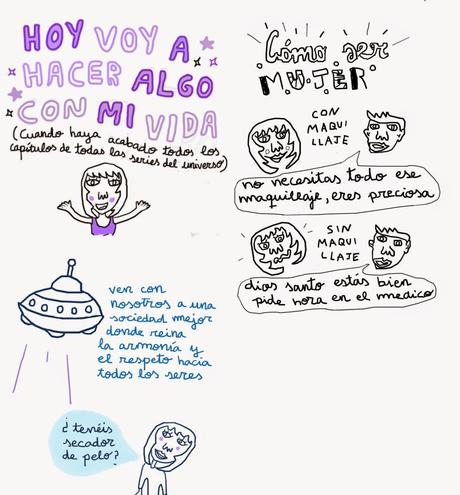 HOY VOY A
HACER ALGO
CON MI VIDA
(Cuando haya acabado todos los
capítulos de todas las series del universo)
Cómo ser
MUJER
CON
MAQUI
LLAJE
no necesitas todo ese
maquillaje, eres preciosa
SIN
MAQUI
LLAJE
dios santo estás bien
pide hora en el medico
ven con
nosotros a una
sociedad mejor
donde reina
la armonía y
el respeto hacia
todos los seres
¿tenéis
secador
de pelo?